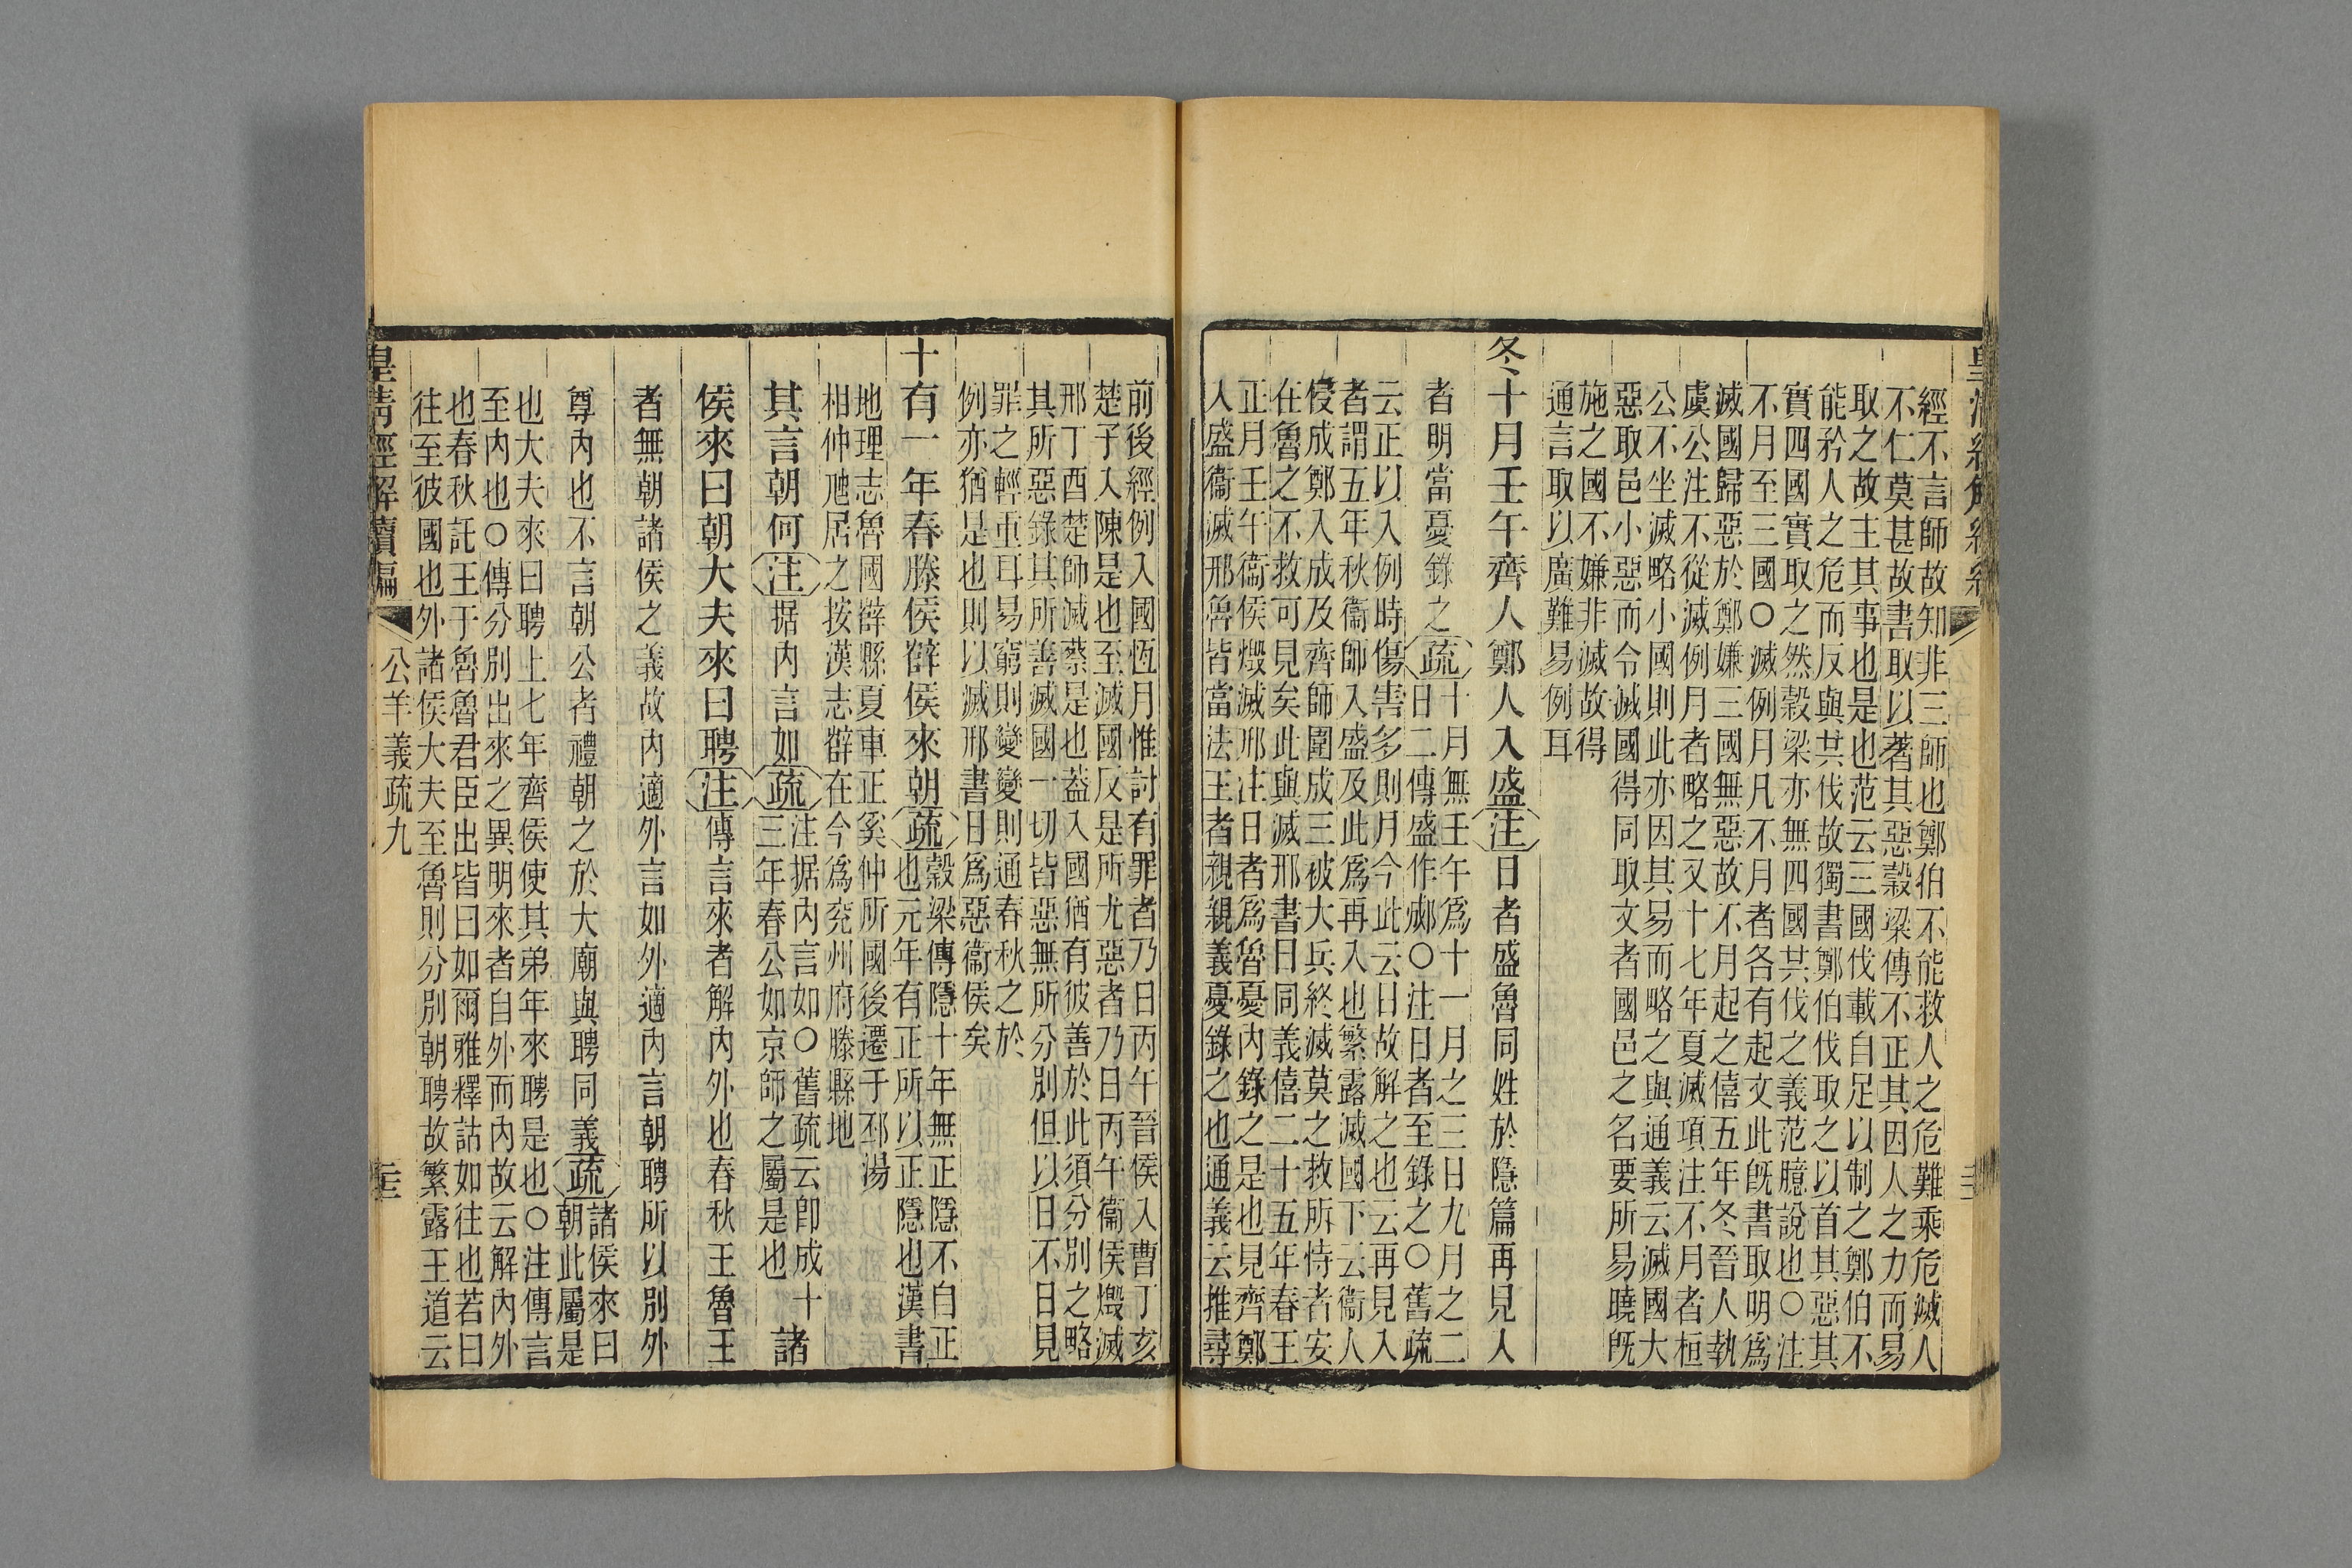 經不言師故知非三師也鄭伯不能救人之危難乘危滅人
不仁莫甚故書取以著其惡穀梁傳不正其因人之力而易
取之故主其事也是也范云三國伐載自足以制之鄭伯不
能矜人之危而反與共伐故獨書鄭伯伐取之以首其惡其
實四國實取之然穀梁亦無四國共伐之義范臆說也○注
不月至三國○滅例月凡不月者各有起文此既書取明爲
滅國歸惡於鄭嫌三國無惡故不月起之僖五年冬晉人執
虞公注不從滅例月者略之又十七年夏滅項注不月者桓
公不坐滅略小國則此亦因其易而略之與通義云滅國大
惡取邑小惡而令滅國得同取文者國邑之名要所易曉旣
施之國不嫌非滅故得
通言取以廣難易例耳
冬十月壬午齊人鄭人入盛注日者盛魯同姓於隱篇再見入
者明當憂錄之疏十月無壬午爲十一月之三日九月之二
日二傳盛作郕○注日者至錄之○舊疏
云正以入例時傷害多則月今此云日故解之也云再見入
者謂五年秋衞師入盛及此爲再入也繁露滅國下云衞人
侵成鄭入成及齊師圍成三被大兵終滅莫之救所恃者安
在魯之不救可見矣此與滅邢書日同義僖二十五年春王
正月壬午衞侯燬滅邢注日者爲魯憂內錄之是也見齊鄭
入盛衞滅邢魯皆當法王者親親義憂錄之也通義云推尋
前後經例入國恆月惟討有罪者乃日丙午晉侯入曹丁亥
楚子入陳是也至滅國反是所尤惡者乃日丙午衞侯燬滅
邢丁酉楚師滅蔡是也葢入國猶有彼善於此須分別之略
其所惡錄其所善滅國一切皆惡無所分別但以日不日見
罪之輕重耳易窮則變變則通春秋之於
例亦猶是也則以滅邢書日爲惡衞侯矣
十有一年春滕侯薛侯來朝疏穀梁傳隱十年無正隱不自正
也元年有正所以正隱也漢書
地理志魯國薛縣夏車正奚仲所國後遷于邳湯
相仲虺居之按漢志薛在今爲兖州府滕縣地
其言朝何注据內言如疏注据內言如○舊疏云即成十
三年春公如京師之屬是也
諸
侯來曰朝大夫來曰聘注傳言來者解內外也春秋王魯王
者無朝諸侯之義故內適外言如外適內言朝聘所以別外
尊內也不言朝公者禮朝之於大廟與聘同義疏諸侯來曰
朝此屬是
也大夫來曰聘上七年齊侯使其弟年來聘是也○注傳言
至內也○傳分別出來之異明來者自外而內故云解內外
也春秋託王于魯魯君臣出皆曰如爾雅釋詁如往也若曰
往至彼國也外諸侯大夫至魯則分別朝聘故繁露王道云
皇清經解續編
公羊義疏九